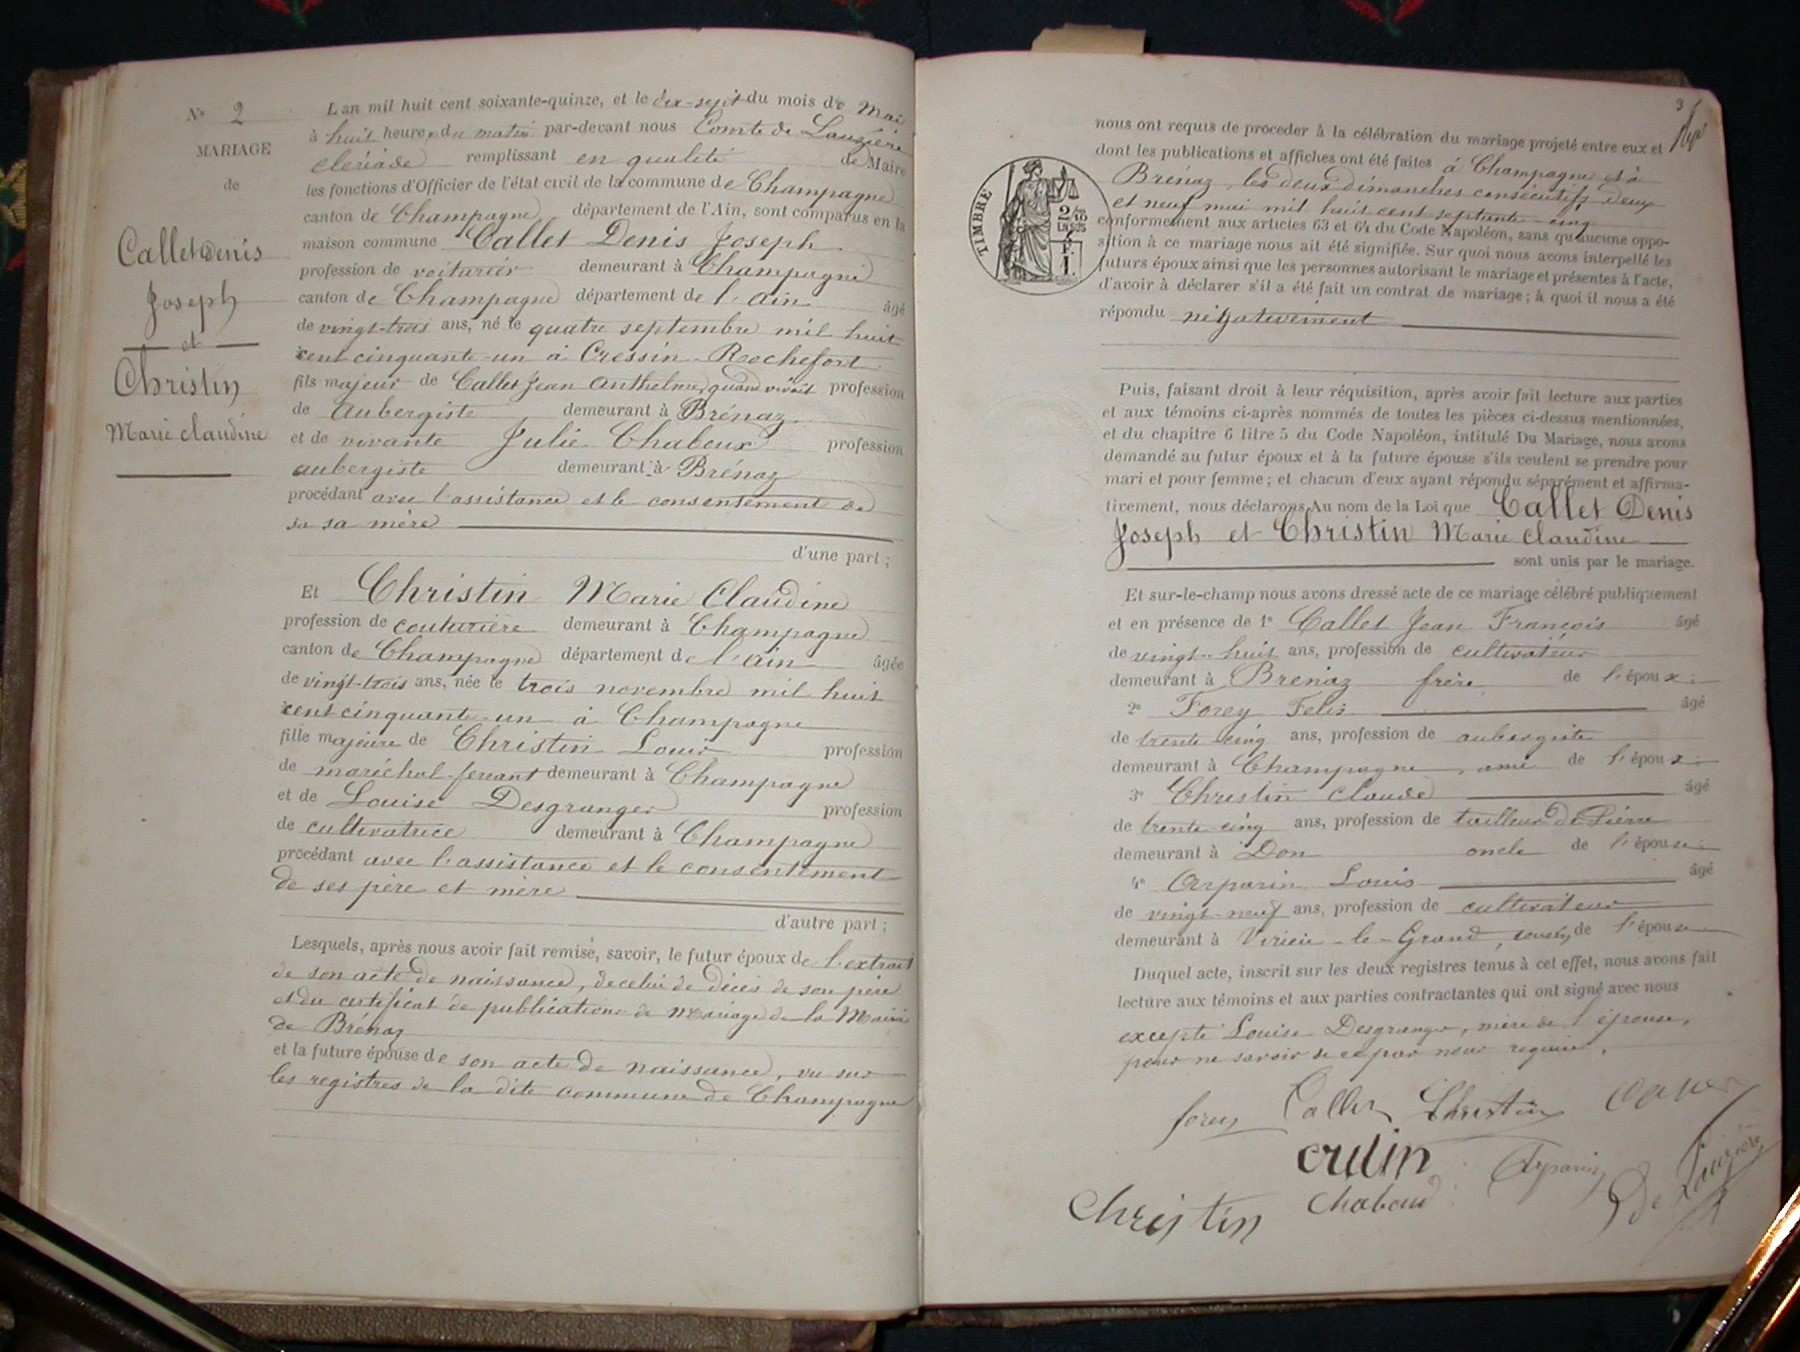 No 2
MARIAGE
de
Callet Denis
Joseph
et
Christin
Marie Claudine
L'an mil huit cent soixante-quinze, et le dix-sept du mois de Mai
à huit heures du matin par-devant nous Comte de Lauzière
remplissant en qualité de Maire
les fonctions d'Officier de l'état civil de la commune de Champagne
canton de Champagne département de l'Ain, sont comparus en la
maison commune Callet Denis Joseph
profession de voiturier demeurant à Champagne
canton de Champagne département de l'ain âgé
de vingt-trois ans, né le quatre septembre mil huit
cent cinquante-un à Cressin-Rochefort
fils majeur de Callet Jean Anthelme, quand vivait profession
de aubergiste demeurant à Brénaz
et de vivante Julie Chaboux profession
aubergiste demeurant à Brénaz
procédant avec l'assistance et le consentement de
sa sa mère
d'une part ;
Et Christin Marie Claudine
profession de couturière demeurant à Champagne
canton de Champagne département de l'ain âgée
de vingt-trois ans, née le trois novembre mil huit
cent cinquante-un à Champagne
fille majeure de Christin Louis profession
de maréchal-ferrant demeurant à Champagne
et de Louise Desgranges profession
de cultivatrice demeurant à Champagne
procédant avec l'assistance et le consentement
de ses père et mère
d'autre part ;
Lesquels, après nous avoir fait remise, savoir, le futur époux de l'extrait
de son acte de naissance, de celui de décès de son père
et du certificat de publications de mariage de la Mairie
de Brénaz
et la future épouse de son acte de naissance, vu sur
les registres de la dite commune de Champagne
3
nous ont requis de proceder à la célébration du mariage projeté entre eux et
dont les publications et affiches ont été faites à Champagne et à
Brénaz, les deux dimanches consécutifs deux
et neuf mai mil huit cent septante-cinq
conformément aux articles 63 et 64 du Code Napoléon, sans qu'aucune oppo-
sition à ce mariage nous ait été signifiée. Sur quoi nous avons interpellé les
futurs époux ainsi que les personnes autorisant le mariage et présentes à l'acte,
d'avoir à déclarer s'il a été fait un contrat de mariage ; à quoi il nous a été
répondu négativement
TIMBRE
Puis, faisant droit à leur réquisition, après avoir fait lecture aux parties
et aux témoins ci-après nommés de toutes les pièces ci-dessus mentionnées,
et du chapitre 6 titre 5 du Code Napoléon, intitulé Du Mariage, nous avons
demandé au futur époux et à la future épouse s'ils veulent se prendre pour
mari et pour femme ; et chacun d'eux ayant répondu séparément et affirma-
tivement, nous déclarons Au nom de la Loi que Callet Denis
Joseph et Christin Marie Claudine
sont unis par le mariage.
Et sur-le-champ nous avons dressé acte de ce mariage célébré publiquement
et en présence de 1° Callet Jean François âgé
de vingt-huit ans, profession de cultivateur
demeurant à Brénaz frère de l'époux
2° Forey Felix âgé
de trente-cinq ans, profession de aubergiste
demeurant à Champagne, ami de l'époux
3° Christin Claude âgé
de trente-cinq ans, profession de tailleur de Pierre
demeurant à Don oncle de l'épouse
4° Arparin Louis âgé
de vingt-neuf ans, profession de cultivateur
demeurant à Virieu-le-Grand, cousin de l'épouse
Duquel acte, inscrit sur les deux registres tenus à cet effet, nous avons fait
lecture aux témoins et aux parties contractantes qui ont signé avec nous
excepté Louise Desgranges, mère de l'épouse,
pour ne savoir de ce par nous requise.
forey Callet Christin
Arparin
Christin Chaboud De Lauzière